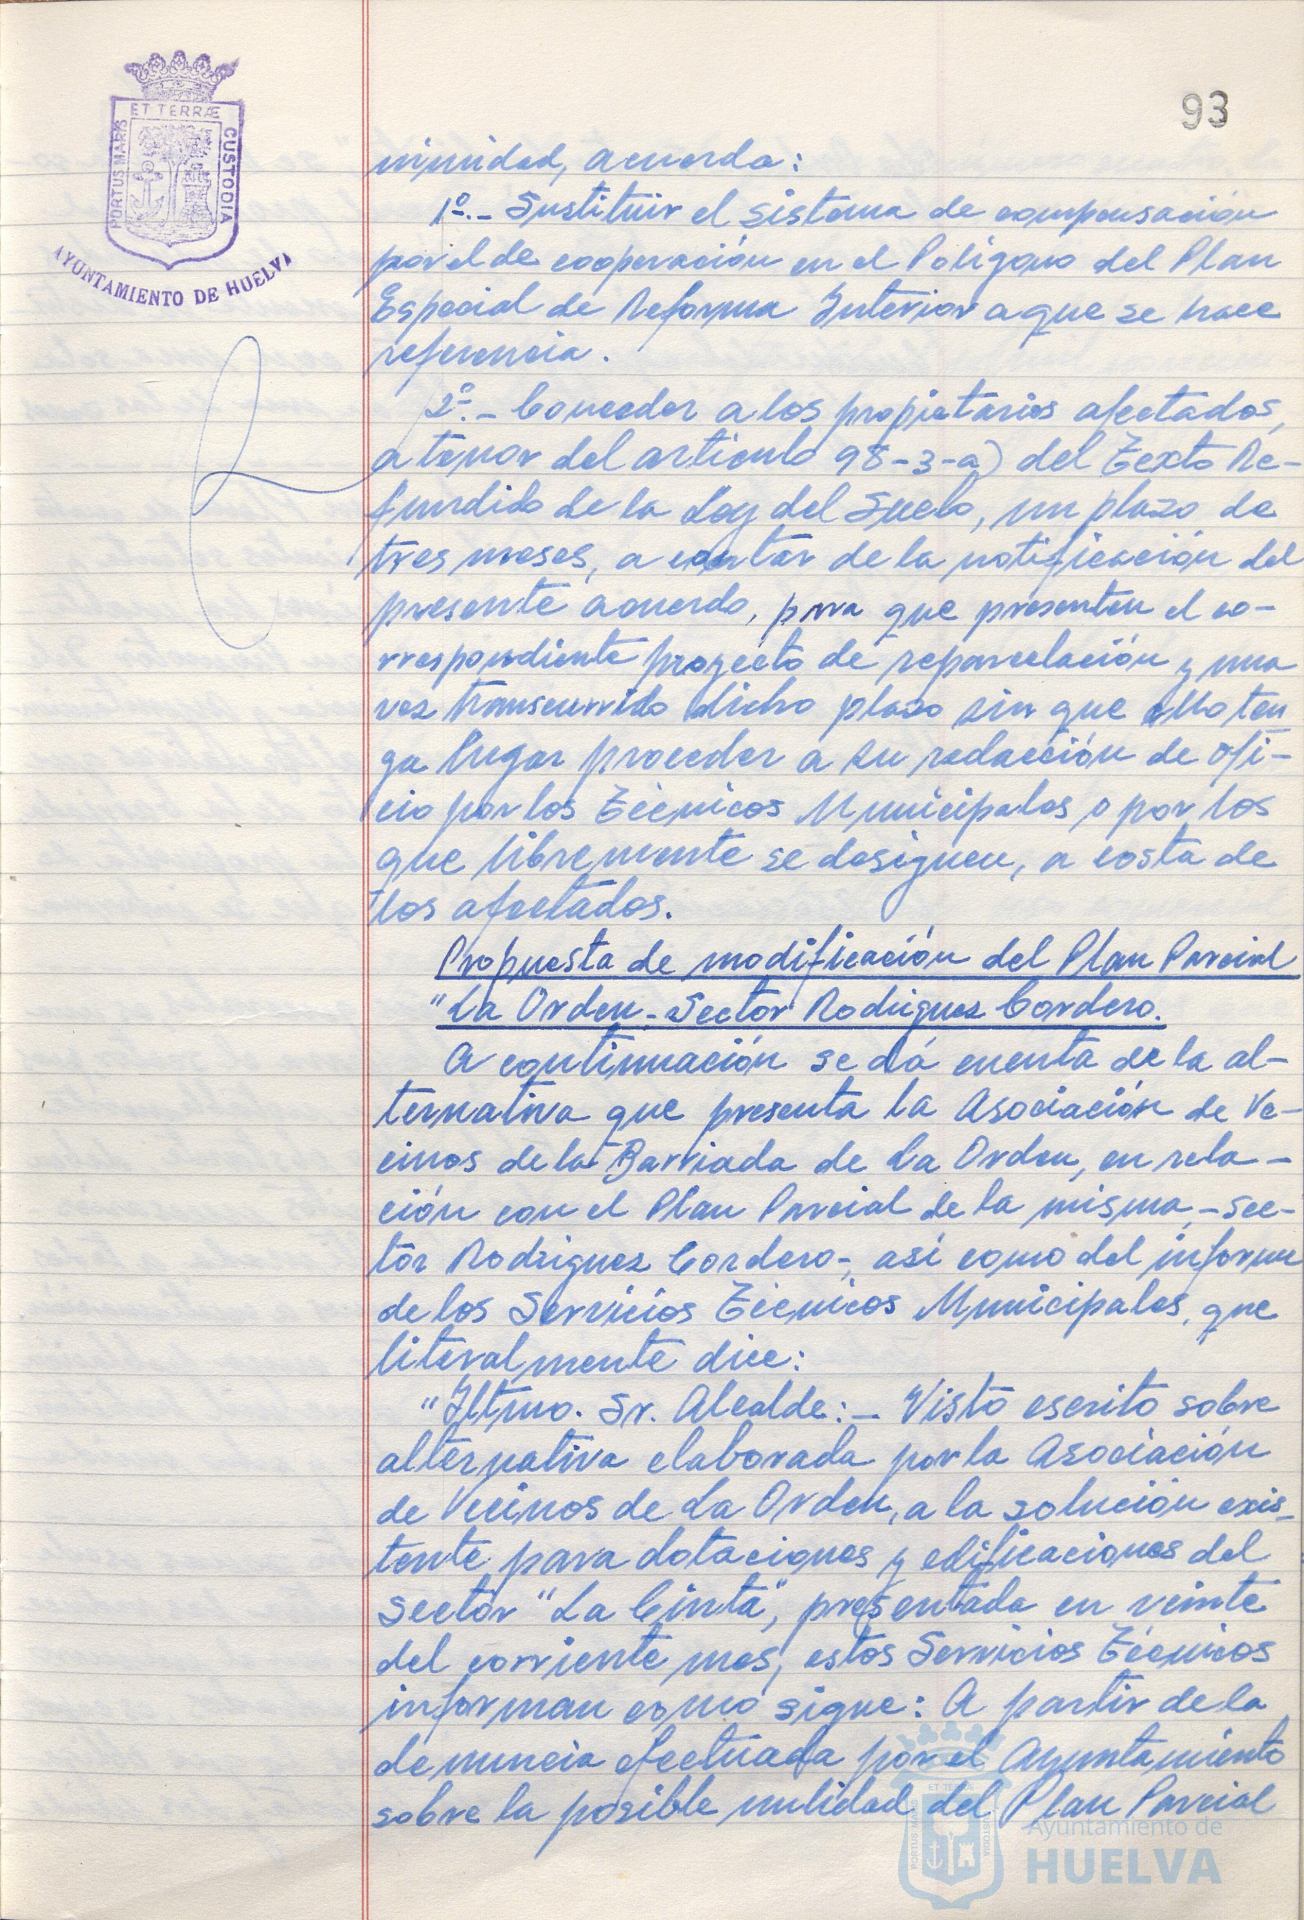 93
ET TERRÆ
PORTUS MARIS
CUSTODIA
AYUNTAMIENTO DE HUELVA
nimidad, acuerda:
1º.- Sustituir el sistema de compensación
por el de cooperación en el Polígono del Plan
Especial de Reforma Interior a que se hace
referencia.
2º.- Conceder a los propietarios afectados,
a tenor del articulo 98-3-a) del Texto Re-
fundido de la Ley del Suelo, un plazo de
tres meses, a contar de la notificación del
presente acuerdo, para que presenten el co-
rrespondiente proyecto de reparcelación y una
vez transcurrido dicho plazo sin que ello ten
ga lugar proceder a su redacción de ofi-
cio por los Técnicos Municipales o por los
que libremente se designen, a costa de
los afectados.
Propuesta de modificación del Plan Parcial
"La Orden - Sector Rodriguez Cordero.
A continuación se dá cuenta de la al-
ternativa que presenta la Asociación de Ve-
cinos de la Barriada de La Orden, en rela-
ción con el Plan Parcial de la misma, - Sec-
tor Rodriguez Cordero-, así como del informe
de los Servicios Técnicos Municipales, que
literalmente dice:
"Iltmo. Sr. Alcalde:- Visto escrito sobre
alternativa elaborada por la Asociación
de Vecinos de La Orden, a la solución exis-
tente para dotaciones y edificaciones del
sector "La Cinta", presentada en veinte
del corriente mes, estos Servicios Técnicos
informan como sigue: A partir de la
denuncia efectuada por el Ayuntamiento
sobre la posible nulidad del Plan Parcial
ET TERRÆ
PORTUS MARIS
CUSTODIA
Ayuntamiento de
HUELVA